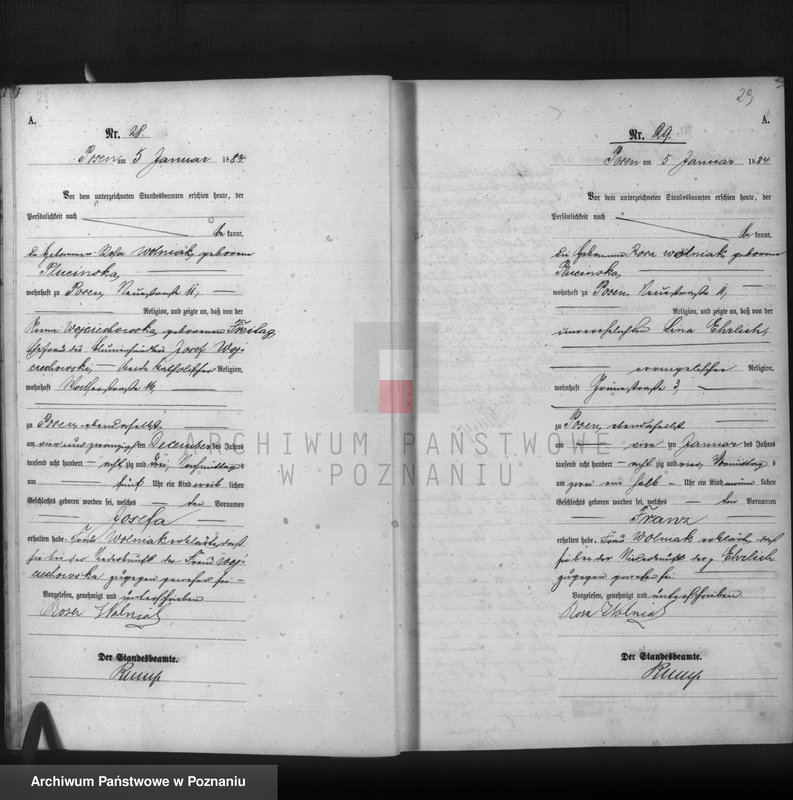 28
A.
Nr. 28.
Posen am 5 Januar 1884
Vor dem unterzeichneten Standesbeamten erschien heute, der
Persönlichkeit nach
be kannt,
die Hebamme Rosa Wolniak, geborene
Plucinska,
wohnhaft zu Posen, Neuestraße 11,
Religion, und zeigte an, daß von der
Anna Wojciechowska, geborenen Freitag
Ehefrau des Josef Woj-
ciechowski, beide katholischer Religion,
wohnhaft
zu Posen, ebendaselbst
am vier und zwanzigsten December des Jahres
tausend acht hundert acht zig und drei, Nachmittags
um fünf Uhr ein Kind weib lichen
Geschlechts geboren worden sei, welches den Vornamen
Josefa
erhalten habe. Frau Wolniak erklärte, daß
sie bei der Niederkunft der Frau Woj-
ciechowska zugegen gewesen sei
Vorgelesen, genehmigt und unterschrieben
Rosa Wolniak
Der Standesbeamte.
29
A.
Nr. 29.
Posen am 5 Januar 1884
Vor dem unterzeichneten Standesbeamten erschien heute, der
Persönlichkeit nach
be kannt,
die Hebamme Rosa Wolniak, geborene
Plucinska,
wohnhaft zu Posen, Neuestraße 11,
Religion, und zeigte an, daß von der
unverehelichten Lina Ehrlich,
evangelischer Religion,
wohnhaft Grünestraße 3,
zu Posen, ebendaselbst
am vier ten Januar des Jahres
tausend acht hundert acht zig und vier, Vormittag s
um ein halb Uhr ein Kind männ lichen
Geschlechts geboren worden sei, welches den Vornamen
Franz
erhalten habe. Frau Wolniak erklärte, daß
sie bei der Niederkunft der Ehrlich
zugegen gewesen sei
Vorgelesen, genehmigt und unterschrieben
Rosa Wolniak
Der Standesbeamte.
ARCHIWUM PAŃSTWOWE
W POZNANIU
Archiwum Państwowe w Poznaniu